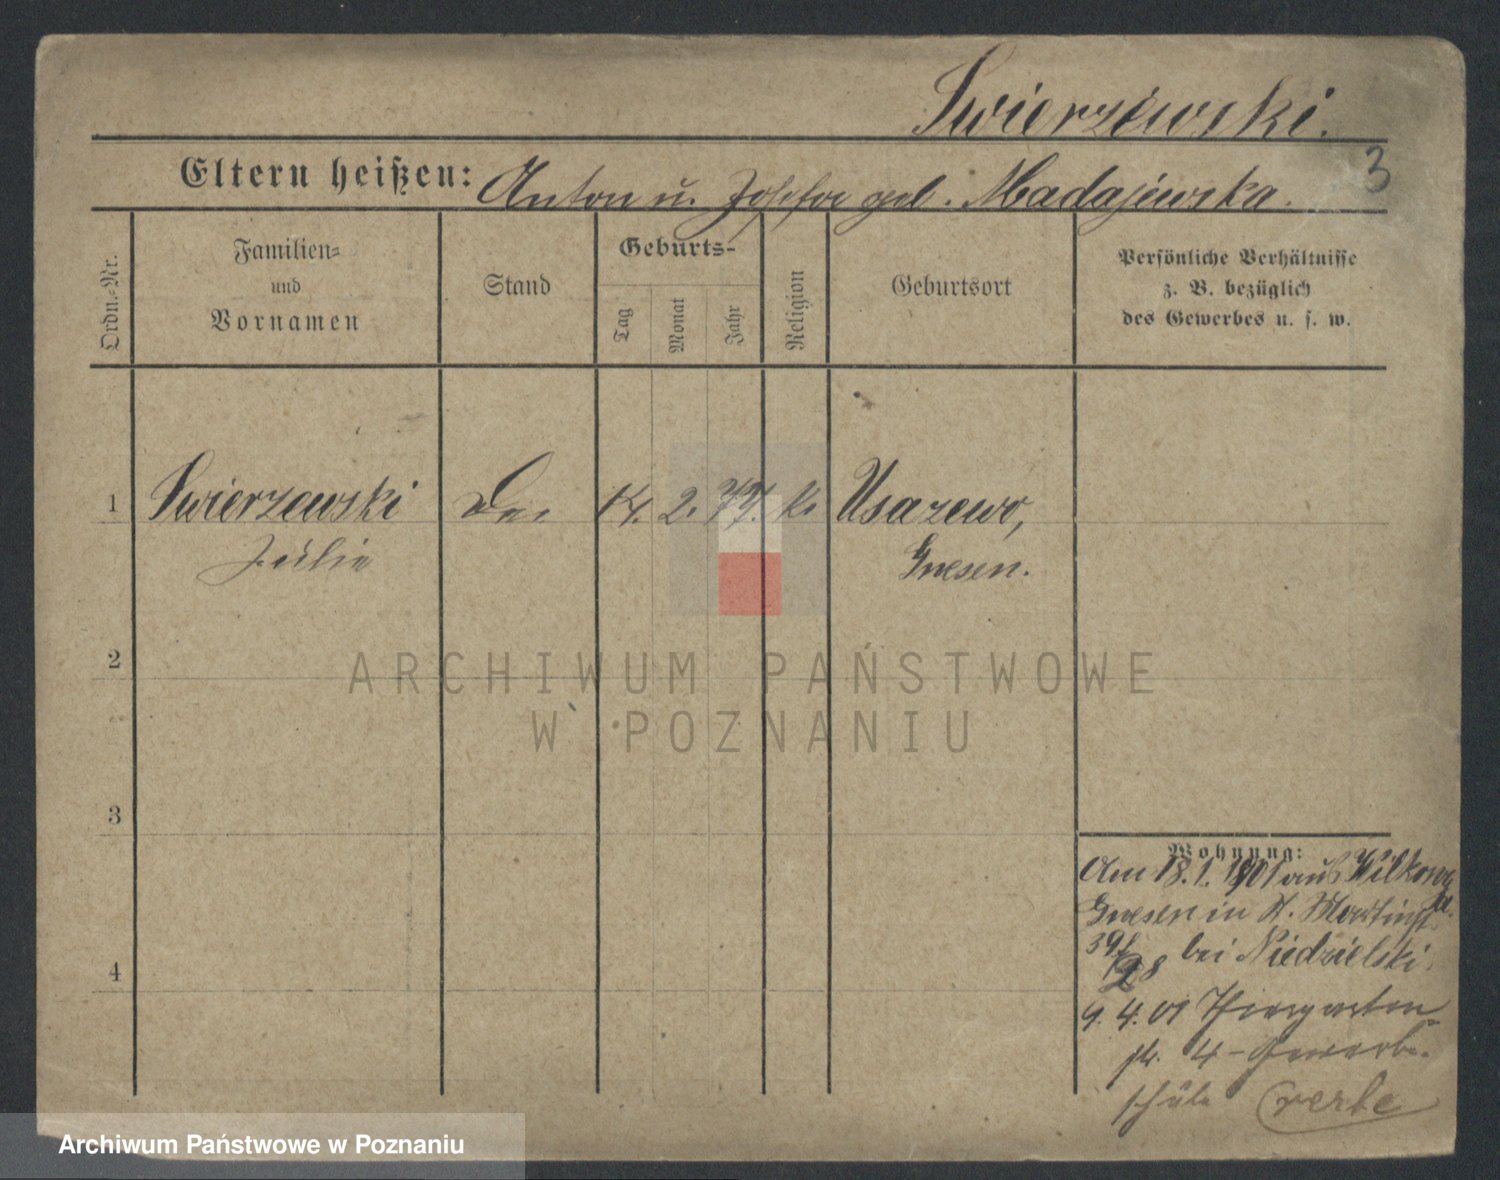 Swierzewski.
3
Eltern heißen: Anton u. Josefa geb. Madajewska.
Ordn.-Nr.
Familien-
und
Vornamen
Stand
Geburts-
Tag
Monat
Jahr
Religion
Geburtsort
Persönliche Verhältnisse
z. B. bezüglich
des Gewerbes u. s. w.
1 Swierzewski 14. 2. 77. k. Usazewo,
Julie Gnesen.
2
ARCHIWUM PAŃSTWOWE
W POZNANIU
3
Wohnung:
Am 18.1.1901 aus
Gnesen in St. Martinst.
39/ bei Niedzielski.
28
4
9. 4. 01 Thiergarten-
st. 4 - Gewerbe-
schule
Archiwum Państwowe w Poznaniu